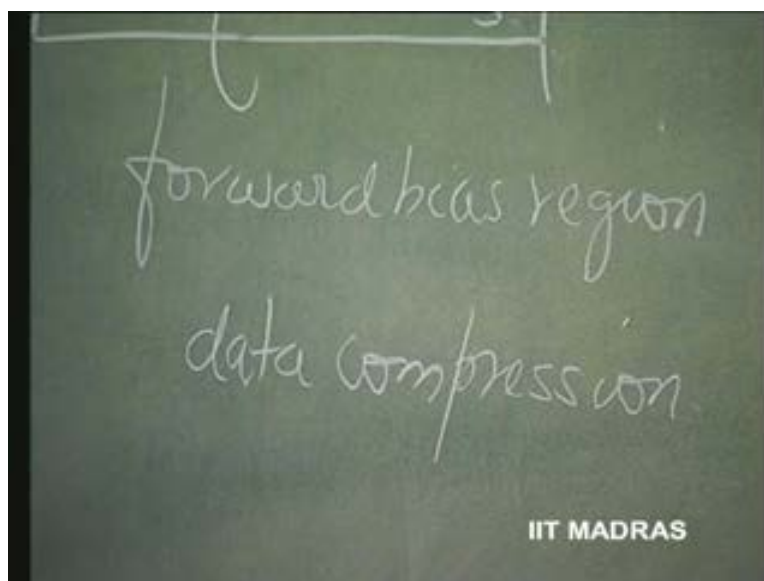 forward bias region
data compression
IIT MADRAS